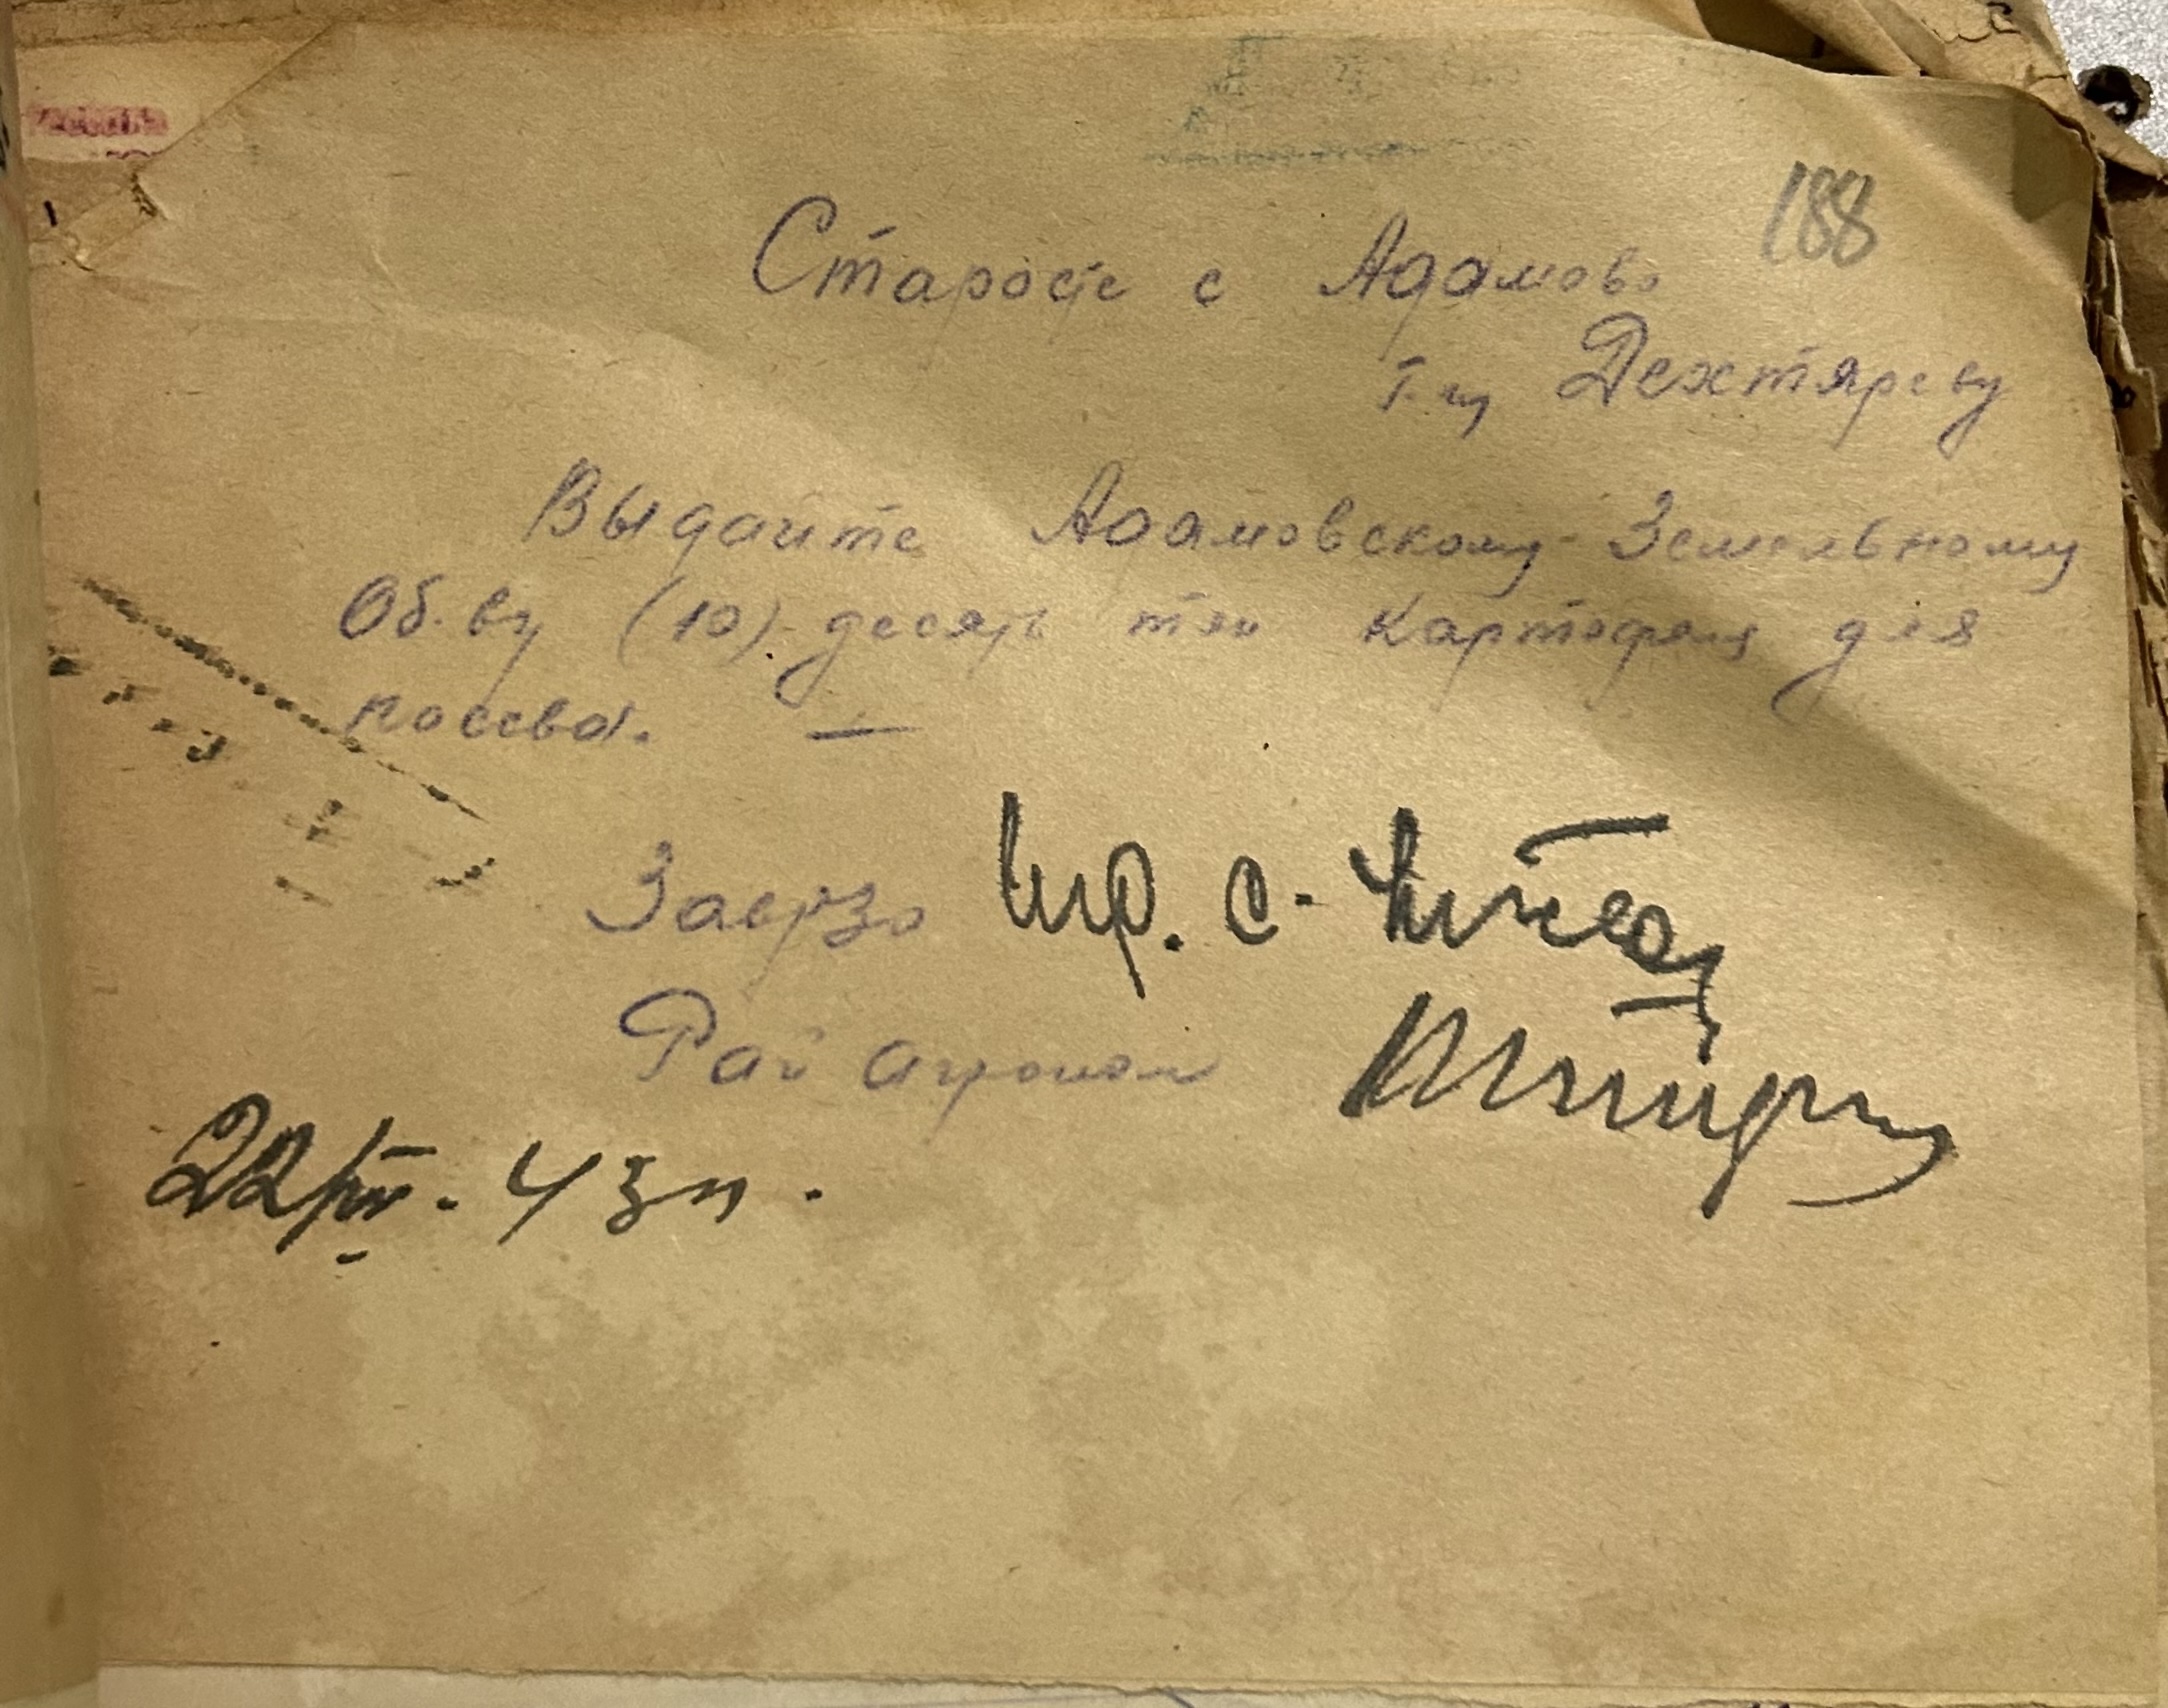 188
Старосте с Адамово
Г-ну Дехтяреву
Выдайте Адамовскому Земельному
Об-ву (10) десять тон картофеля для
посева. —
Заврзо
Рай агроном
22/IV. 43 г.